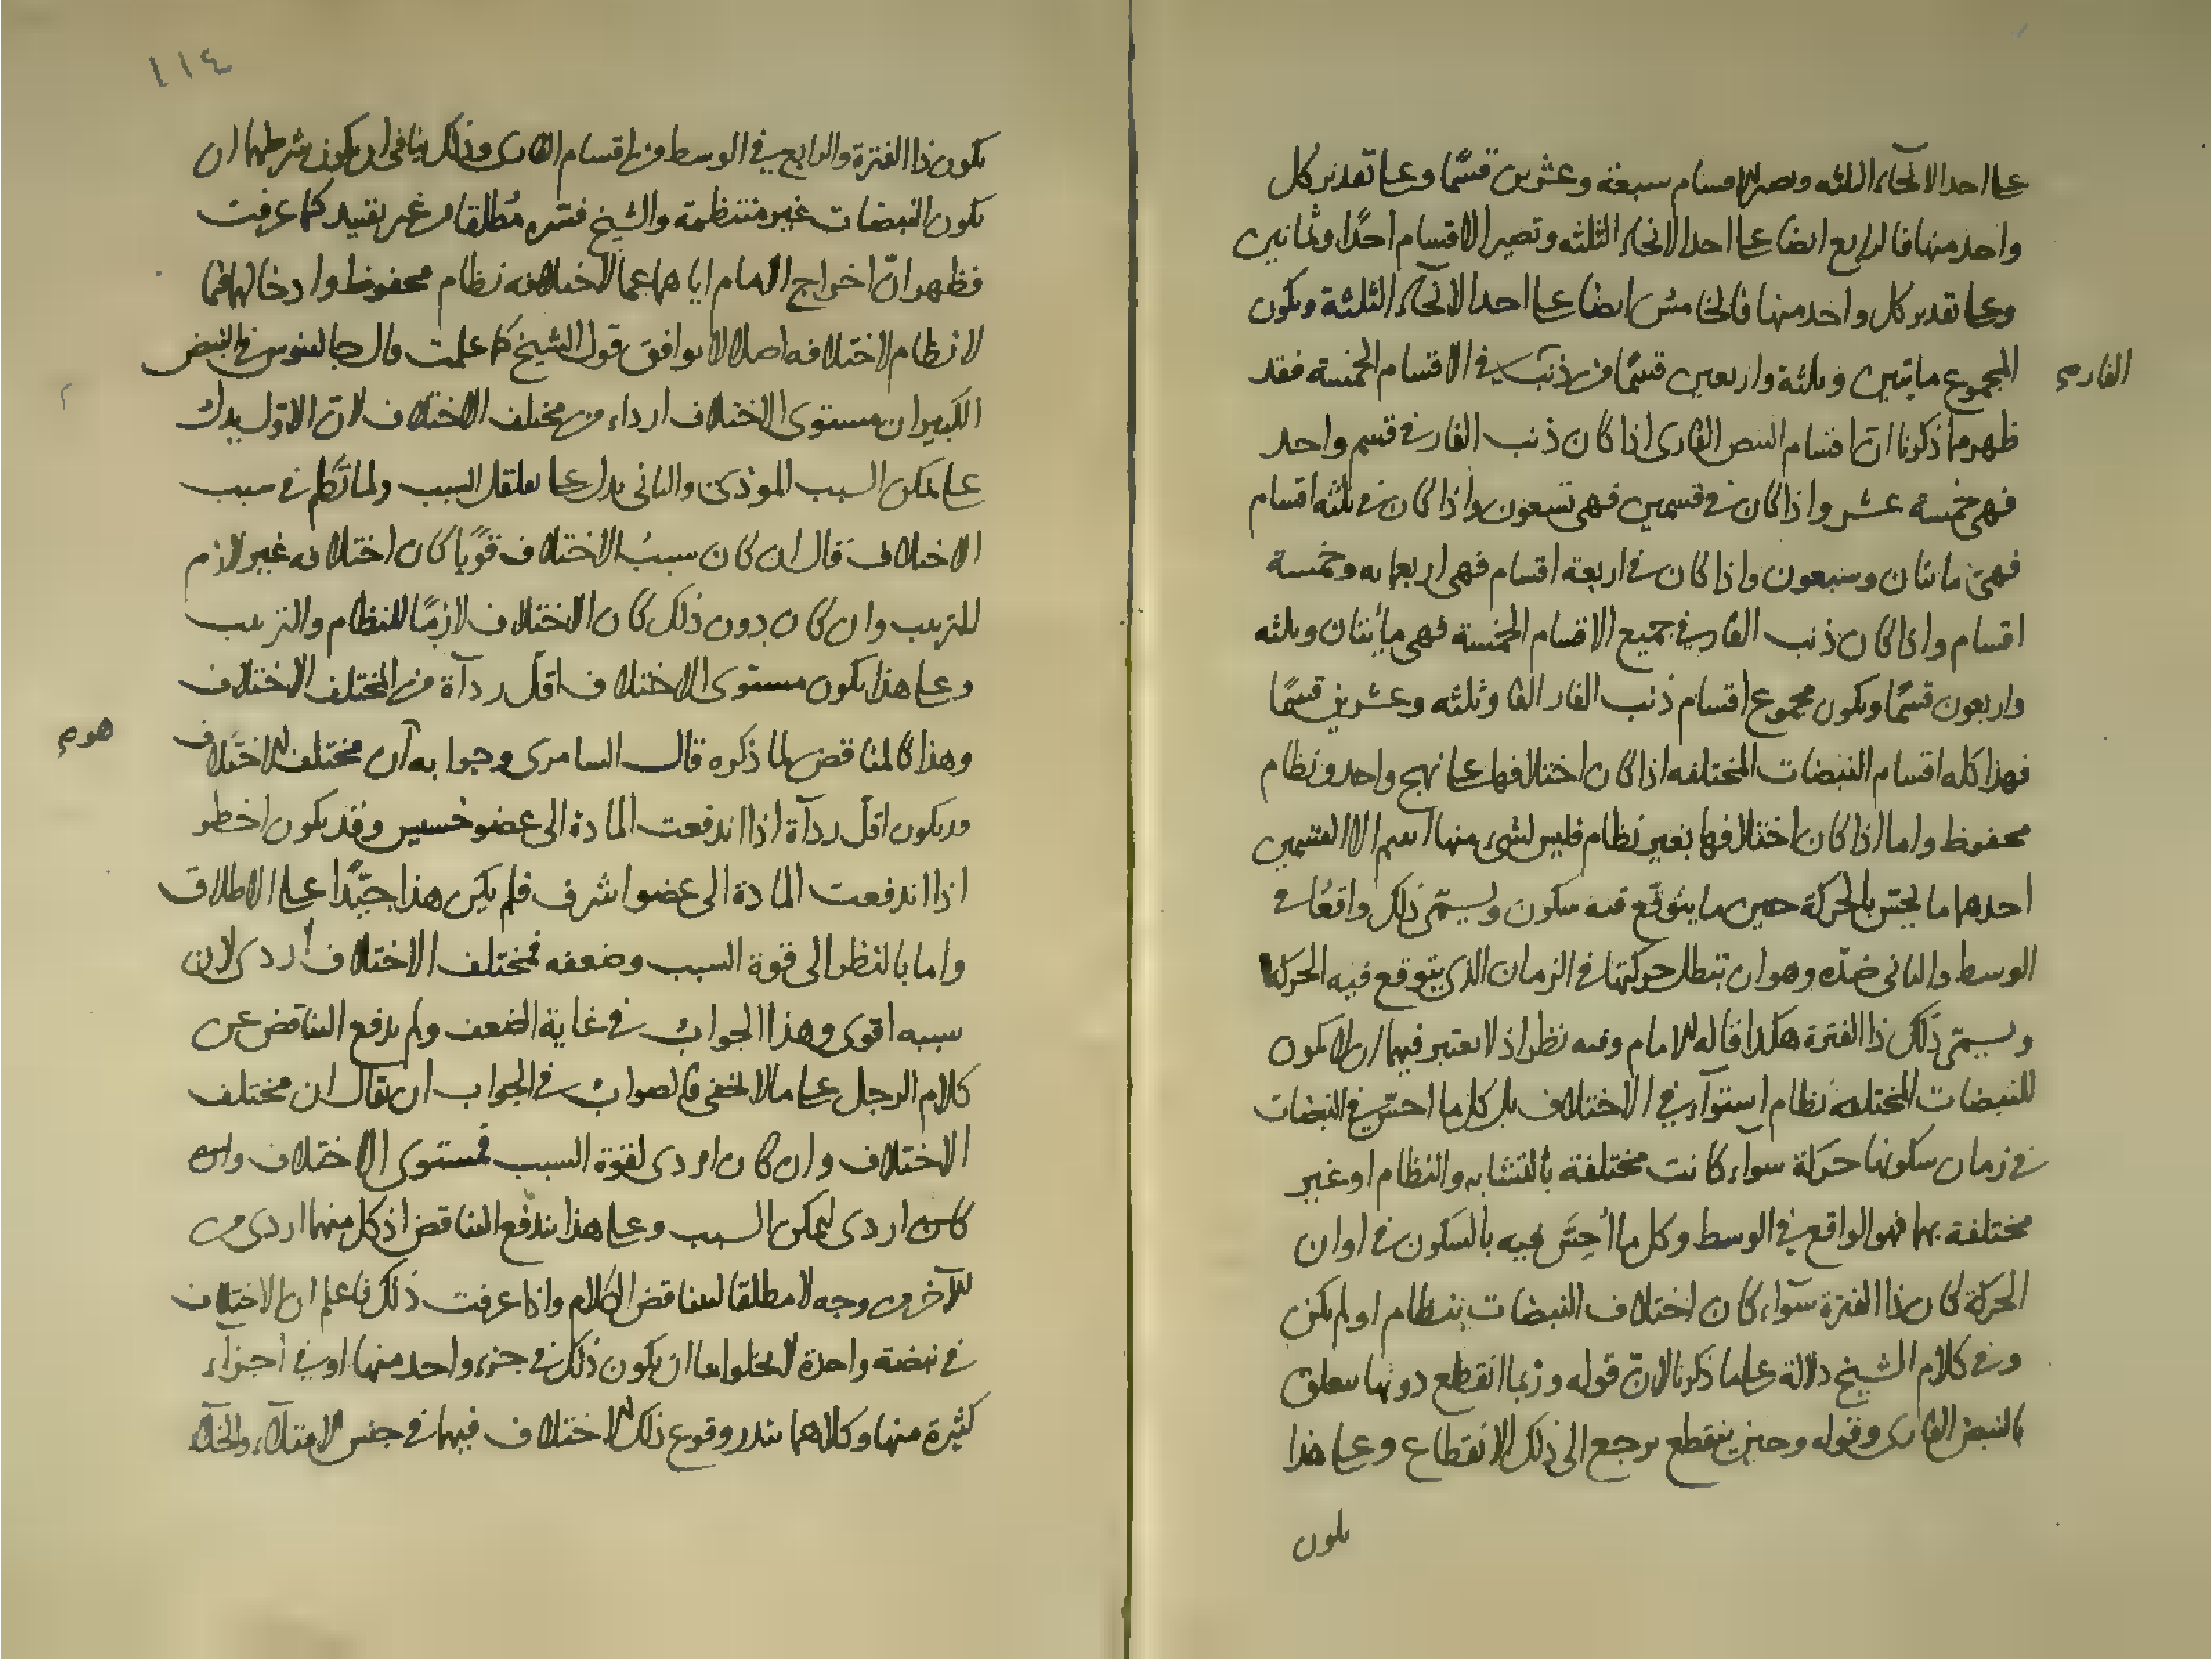 على احد الانحاء الثلثه ويصير الاقسام سبعة وعشرين قسمًا وعلى تقدير كل
واحد منها فالرابع ايضا على احد الانحاء الثلثه وتصير الاقسام احدًا وثمانين
وعلى تقدير كل واحد منها فالخامس ايضا على احد الانحآء الثلثة ويكون
المجموع مايتين وثلثة واربعين قسمًا من ذنب في الاقسام الخمسة فقد
الفار
ظهر مما ذكرنا ان اقسام النبض الفارى اذا كان ذنب الفار في قسم واحد
فهى خمسة عشر واذا كان في قسمين فهى تسعون واذا كان في ثلثه اقسام
فهى مائتان وسبعون واذا كان في اربعة اقسام فهى اربعمايه وخمسة
اقسام واذا كان ذنب الفار في جميع الاقسام الخمسة فهى مأئتان وثلثه
واربعون قسمًا ويكون مجموع اقسام ذنب الفار الفا وثلثه وعشرين قسمًا
فهذا كله اقسام النبضات المختلفه اذا كان اختلافها على نهج واحد ونظام
محفوظ واما اذا كان اختلافها بغير نظام فليس لشىء منها اسم الا القسمين
احدهما ما يحسّ بالحركة حين ما يتوقّع فيه سكون ويسمّى ذلك واقعًا في
الوسط والثانى ضدّه وهو ان تبطل حركتها في الزمان الذى يتوقع فيه الحركة
ويسمّى ذلك ذا الفترة هكذا قاله الامام وفيه نظر اذ لا يعتبر فيهما ان لا يكون
للنبضات المختلفة نظام استوآء في الاختلاف بل كل ما احسّ في النبضات
في زمان سكونها حركة سواء كانت مختلفة بالتشابه والنظام او غير
مختلفة بهما فهو الواقع في الوسط وكل ما أُحِسَّ فيه بالسكون في اوان
الحركة كان ذا الفترة سوآء كان اختلاف النبضات بنظام او لم يكن
وفي كلام الشيخ دلالة على ما ذكرنا لانّ قوله وربما انقطع دونها متعلق
بالنبض الفارى وقوله وحين ينقطع يرجع الى ذلك الانقطاع وعلى هذا
يكون
١١٤
يكون ذا الفترة والواقع في الوسط من اقسام الفارى وذلك ينافى ان يكون شرطهما ان
يكون النبضات غير منتظمة والشيخ فسّره مُطلقا من غير تقييد كما عرفت
فظهر انّ اخراج الامام اياهما عما لاختلافه نظام محفوظ وادخالهما فيما
لا نظام لاختلافه اصلا لا يوافق قول الشيخ كما علمت قال جالينوس في النبض
الكبير ان مستوى الاختلاف ارداء من مختلف الاختلاف لانّ الاوّل يدل
على تمكن السبب الموذى والثانى يدل على تقلقل السبب ولما تكلم في سبب
الاختلاف قال ان كان سببُ الاختلاف قويًا كان اختلافه غير لازم
للترتيب وان كان دون ذلك كان الاختلاف لازمًا للنظام والترتيب
وعلى هذا يكون مستوى الاختلاف اقلّ ردآة من المختلف الاختلاف
وهذا كالمناقض لما ذكره قال السامرى وجوابه آن مختلف الاختلاف
هو
قد يكون اقلّ ردآة اذا اندفعت المادة الى عضو خسيس وقد يكون اخطر
اذا اندفعت المادة الى عضو اشرف فلم يكن هذا جيّدًا على الاطلاق
واما بالنظر الى قوة السبب وضعفه فمختلف الاختلاف أردى لان
سببه اقوى وهذا الجواب في غاية الضعف ولم يدفع التناقض عن
كلام الرجل على ما لا يخفى فالصواب في الجواب ان يقال ان مختلف
الاختلاف وان كان اردى لقوة السبب فمستوى الاختلاف وان
كان اردى لتمكن السبب وعلى هذا يندفع التناقض اذ كل منهما اردى من
الآخر من وجه لا مطلقا ليتناقض الكلام واذا عرفت ذلك فاعلم ان الاختلاف
في نبضة واحدة لا يخلوا اما ان يكون ذلك في جزء واحد منها او في اجزآء
كثيرة منها وكلاهما يندر وقوع ذلك الاختلاف فيهما في جنس الامتلآء والخلآء